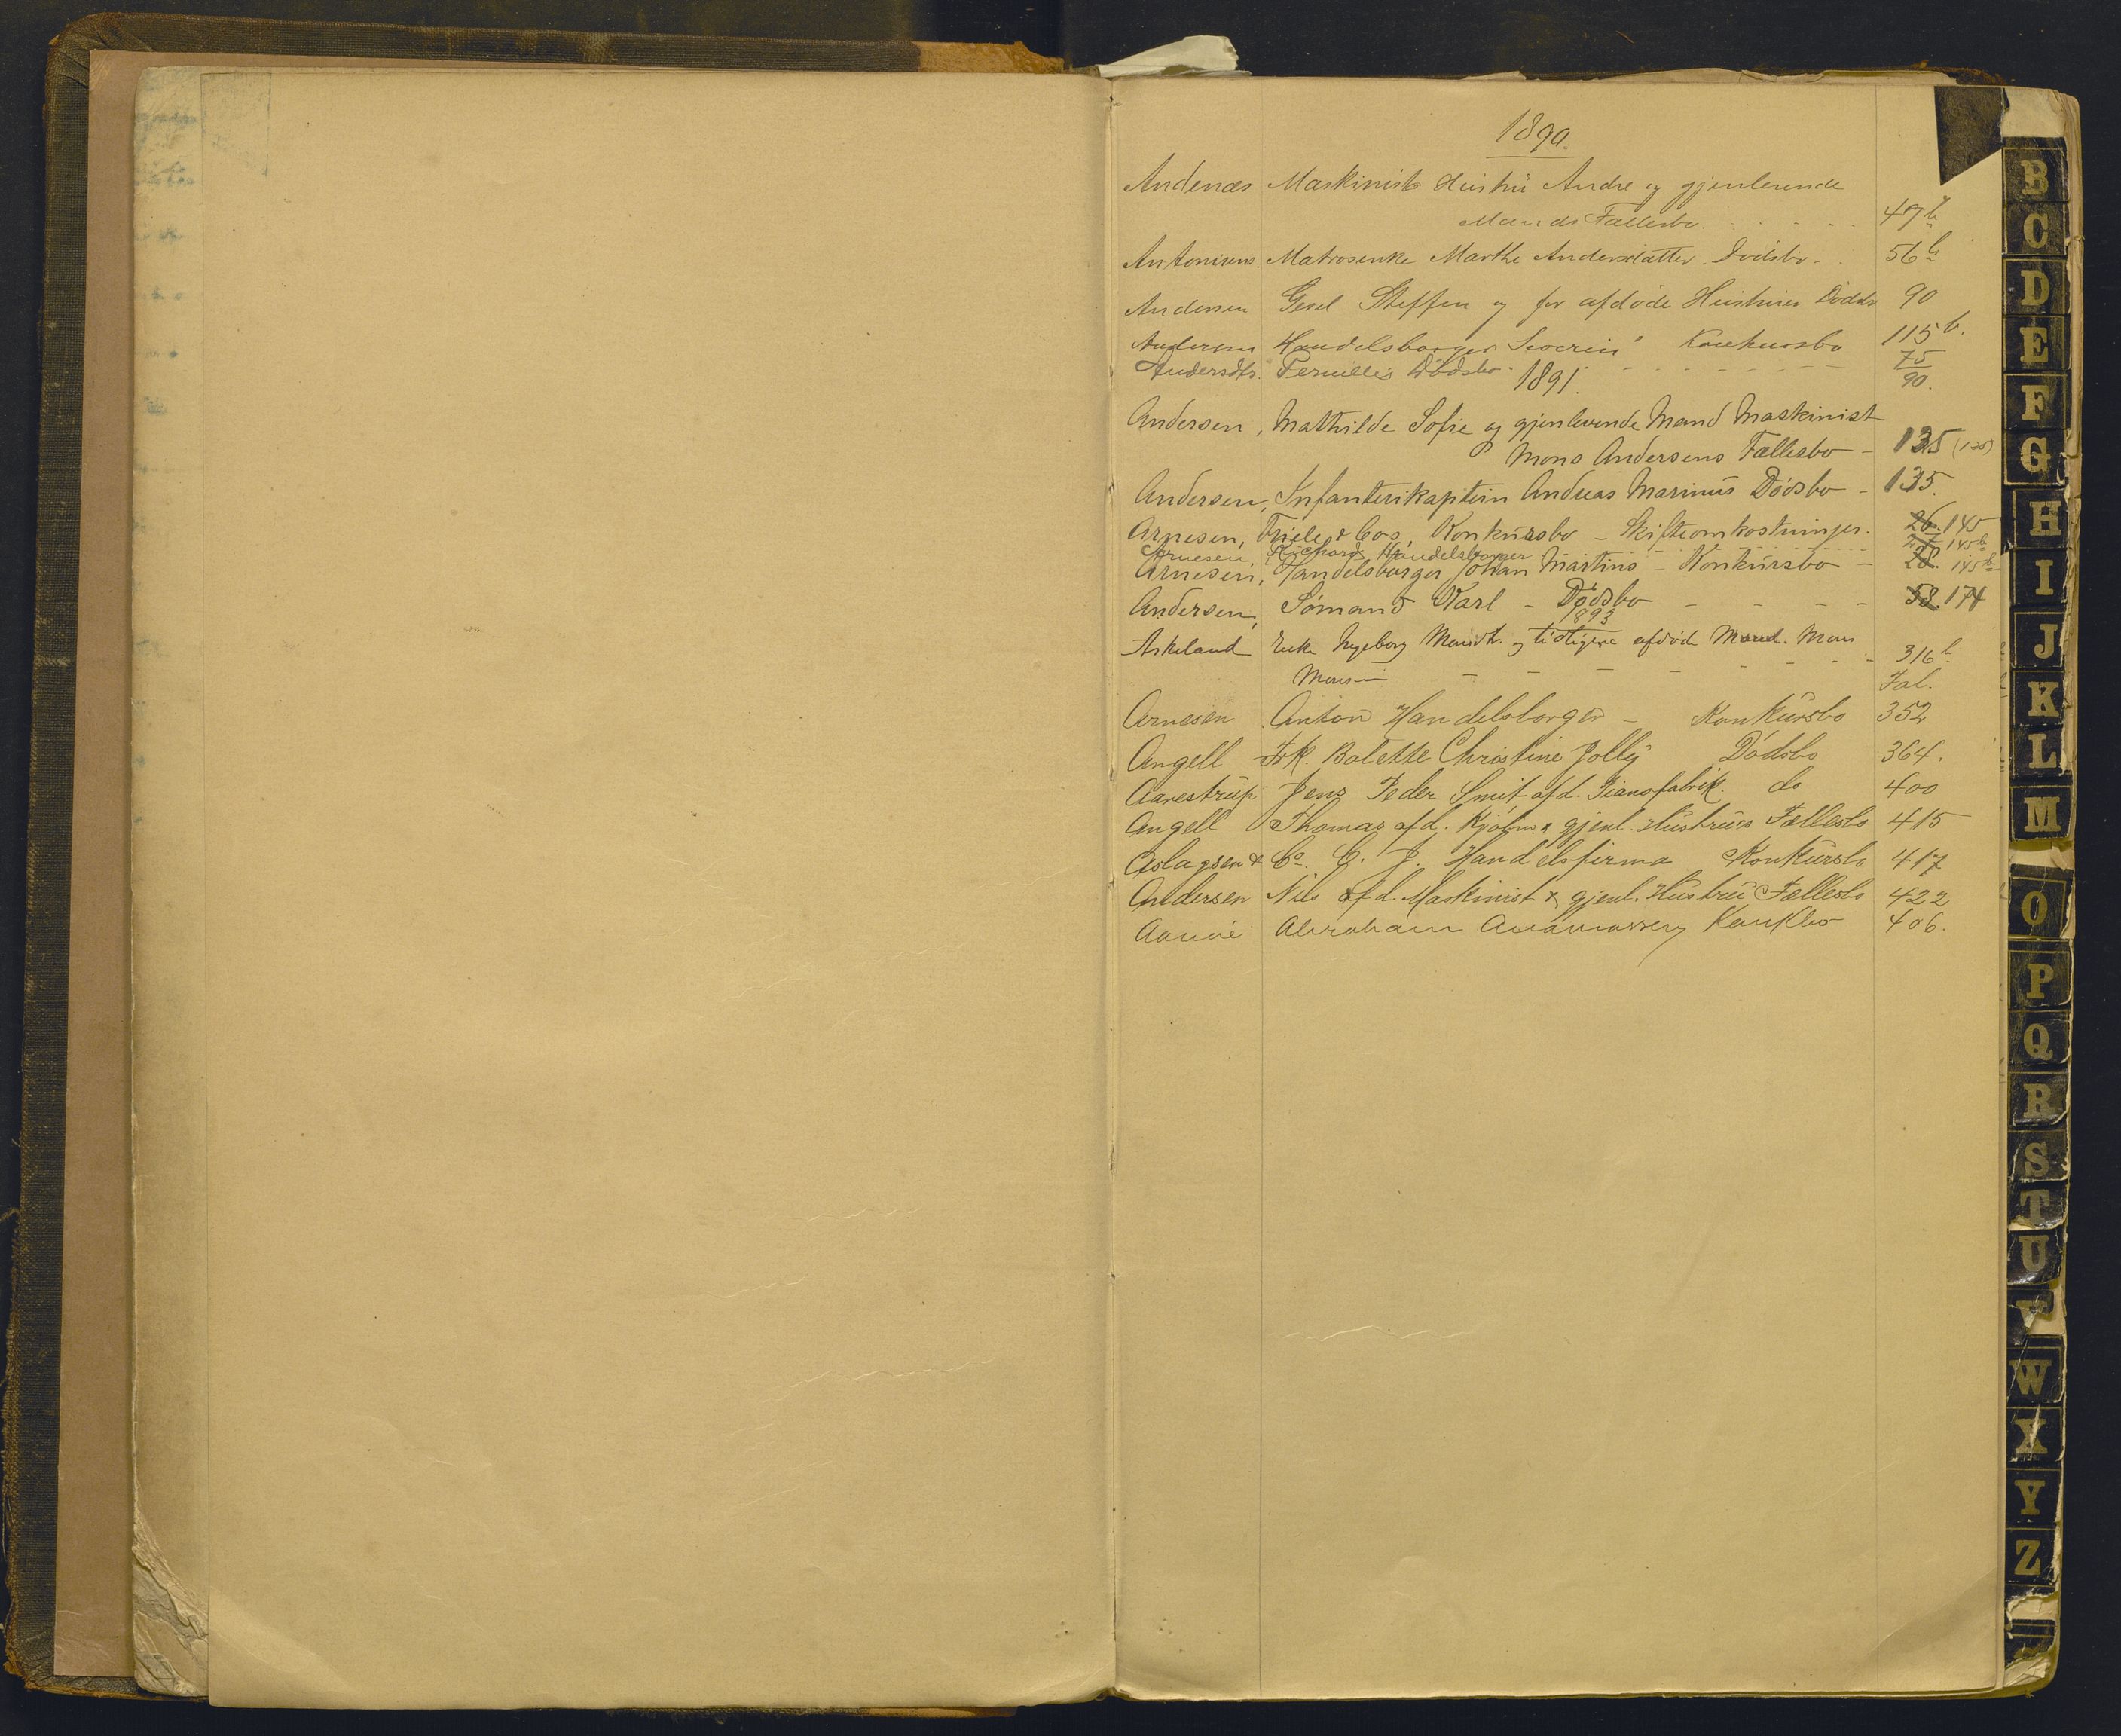 1890.
Andenæs Maskinists Hustru Andre og gjenlevende
Mands Fællesbo. 47 b
Antonisens Matrosenke Marthe Andersdatter. Dødsbo. 56 b
Andersen Gesel Steffen og før afdøde Hustrues Dødsbo 90
Andersen Handelsborger Severin Konkursbo 115 b.
Andersdtr. Pernilles Dødsbo 75
90.
1891.
Andersen, Mathilde Sofie og gjenlevende Mand Maskinist
Mons Andersens Fællesbo - 135 (125)
Andersen, Infanterikaptein Andreas Marinus Dødsbo - 135.
Arnesen, Friele & Cos, Konkursbo - Skifteomkostninger. 26. 145
Arnesen, Richard, Handelsborger 27 145 b
Arnesen, Handelsborger Johan Martins - Konkursbo - 28. 145 b
Andersen, Sømand Karl - Dødsbo - - - - 58. 174
1893
Askeland Enke Ingeborg Monsdtr. og tidligere afdøde Mand. Mons
Monsen - - - - - - - 316 b.
Fol.
Arnesen Anton Handelsborger - Konkursbo 352
Angell Frk. Bolette Christine Jolly Dødsbo 364.
Aarestrup Jens Peder Smit afd. Pianofabrik. do 400
Angell Thomas afd. Kjøbm. & gjenl. Hustrues Fællesbo 415
Aslagsen & Co. C. J. Handelsfirma Konkursbo 417
Andersen Nils afd. Maskinist & gjenl. Hustru Fællesbo 422
Abraham 406.
B
C
D
E
F
G
H
I
J
K
L
M
O
P
Q
R
S
T
U
V
W
X
Y
Z